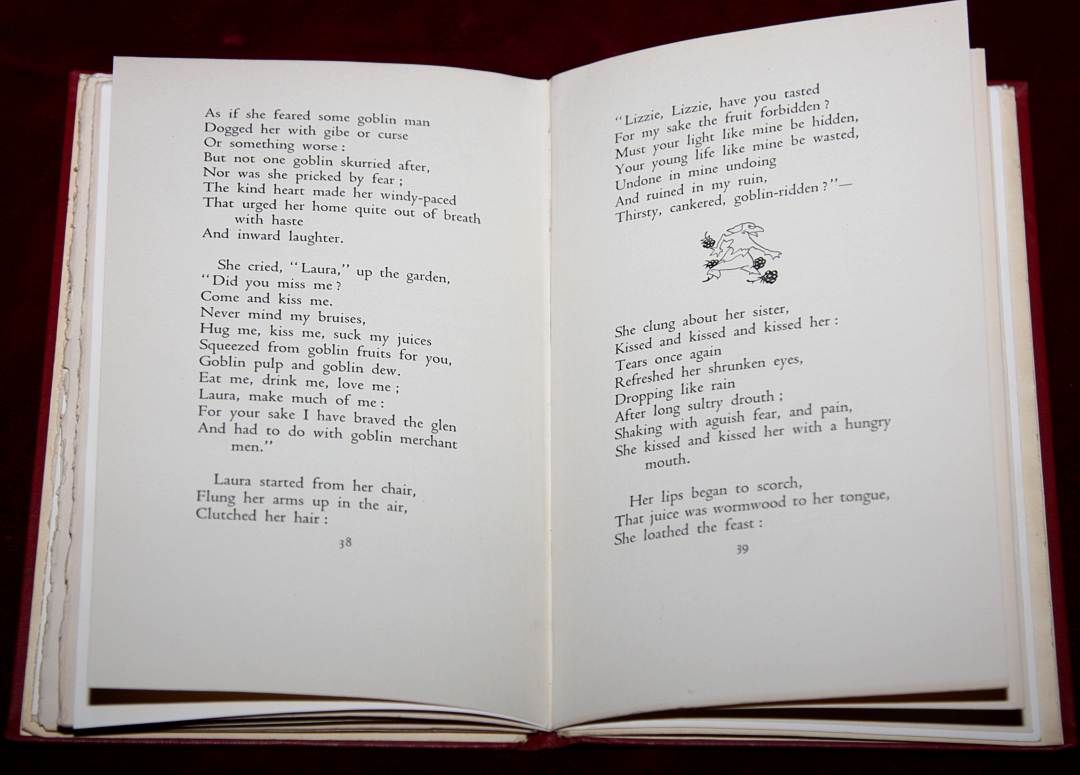 As if she feared some goblin man
Dogged her with gibe or curse
Or something worse :
But not one goblin skurried after,
Nor was she pricked by fear ;
The kind heart made her windy-paced
That urged her home quite out of breath
with haste
And inward laughter.
She cried, “Laura,” up the garden,
“Did you miss me ?
Come and kiss me.
Never mind my bruises,
Hug me, kiss me, suck my juices
Squeezed from goblin fruits for you,
Goblin pulp and goblin dew.
Eat me, drink me, love me ;
Laura, make much of me :
For your sake I have braved the glen
And had to do with goblin merchant
men.”
Laura started from her chair,
Flung her arms up in the air,
Clutched her hair :
38
“Lizzie, Lizzie, have you tasted
For my sake the fruit forbidden ?
Must your light like mine be hidden,
Your young life like mine be wasted,
Undone in mine undoing
And ruined in my ruin,
Thirsty, cankered, goblin-ridden ?”—
She clung about her sister,
Kissed and kissed and kissed her :
Tears once again
Refreshed her shrunken eyes,
Dropping like rain
After long sultry drouth ;
Shaking with aguish fear, and pain,
She kissed and kissed her with a hungry
mouth.
Her lips began to scorch,
That juice was wormwood to her tongue,
She loathed the feast :
39